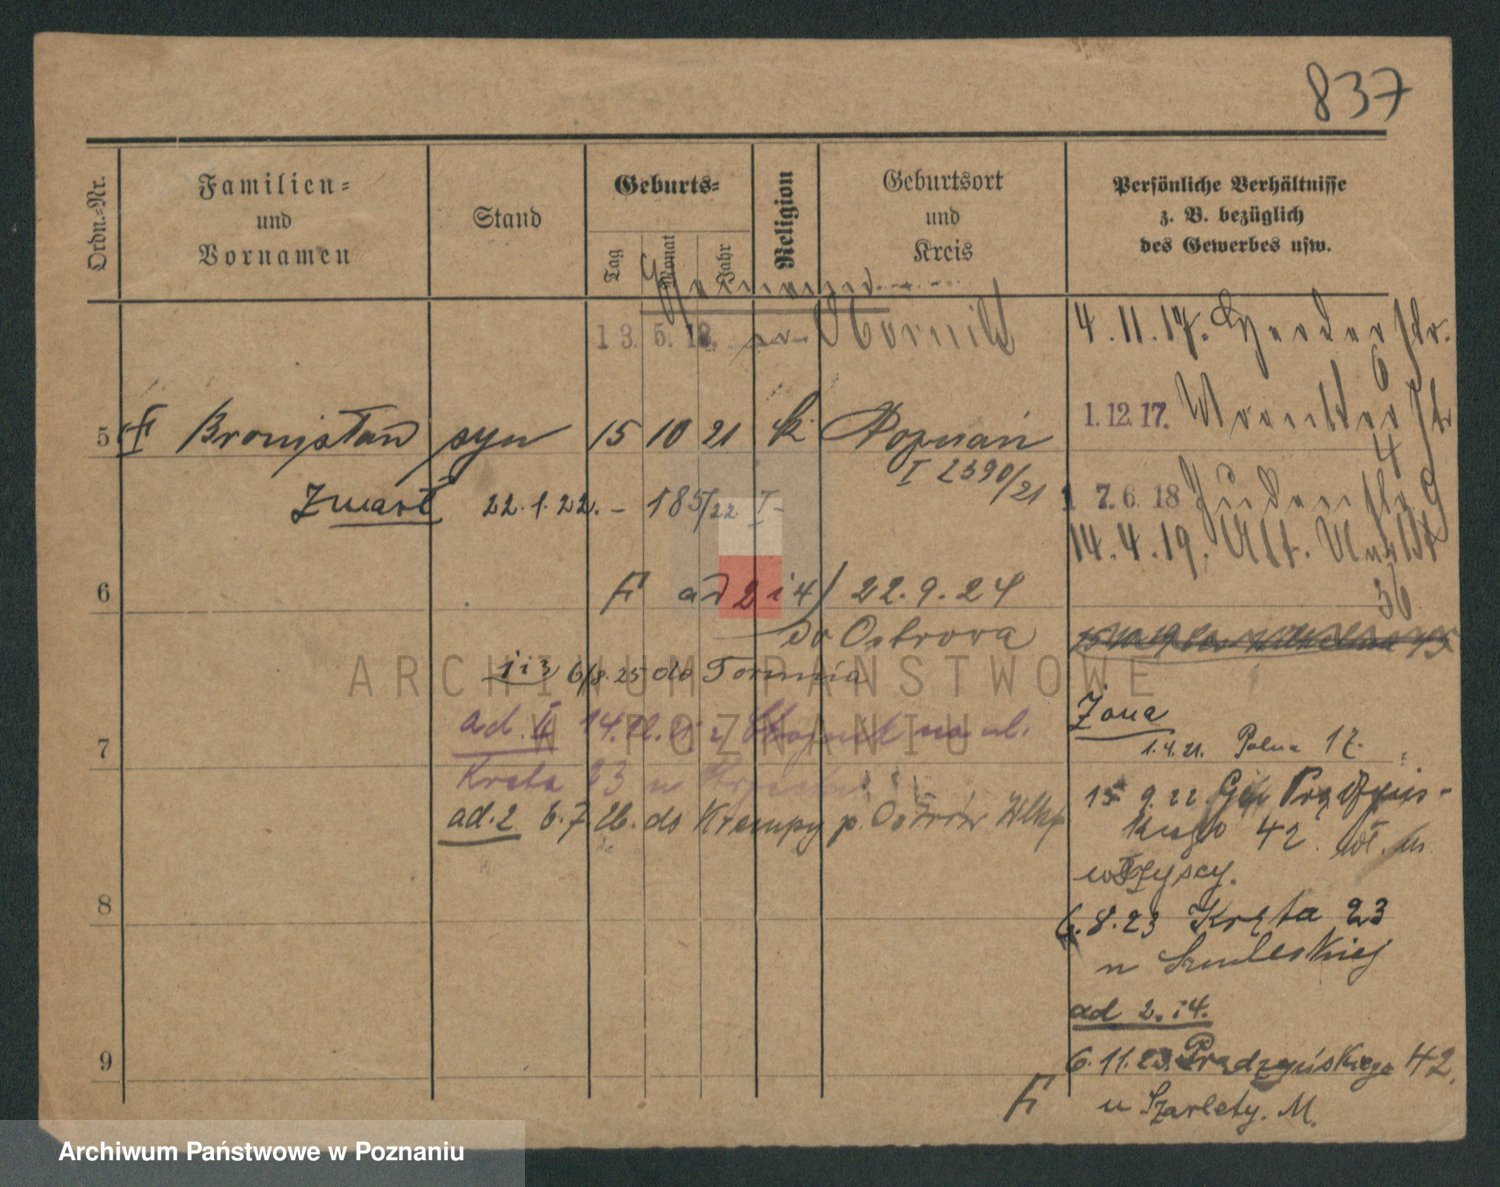 837
Ordn.-Nr.
Familien-
und
Vornamen
Stand
Geburts-
Tag
Monat
Jahr
Religion
Geburtsort
und
Kreis
Persönliche Verhältnisse
z. B. bezüglich
des Gewerbes usw.
13. 5. 18. Obornik
4.11.17. Herderstr.
6
1.12.17.
4
5 Bronisław syn 15 10 21 k Poznań
I 2390/21
Zmarł 22.1.22. - 185/22 I-
7.6.18 Judenstr 9
14.4.19. Alt. Markt
36
6
ad 2 i 4) 22.9.24
do Ostrowa
1 i 3 6/8.25 do Torunia
Żona
1.4.21. Polna 17.
7
ad. II 14. na ul.
Kręta 23 u
ad. 2 6.7 26. do Krempy p. Ostrów Wlkp
15 9.22 Prądzyńs-
kiego 42.
wszyscy.
8
6.8.23 Kręta 23
u
ad 2. i 4.
9
6.11.23. Prądzyńskiego 42.
u Szarlety. M.
ARCHIWUM PAŃSTWOWE
W POZNANIU
Archiwum Państwowe w Poznaniu